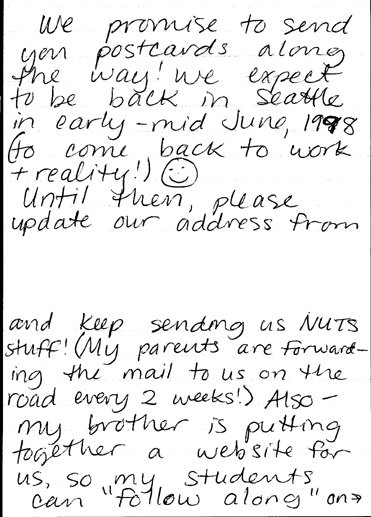 We promise to send
you postcards along
the way! We expect
to be back in Seattle
in early-mid June, 1998
(to come back to work
+ reality!) ☺
Until then, please
update our address from
and keep sending us NUTS
stuff! (My parents are forward-
ing the mail to us on the
road every 2 weeks!) Also -
my brother is putting
together a website for
us, so my students
can "follow along" on→